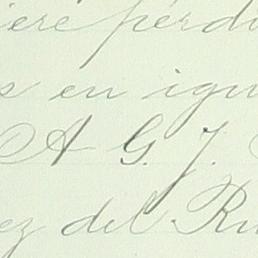 iere perdi
s en igu
A G. J.
ez del Ru